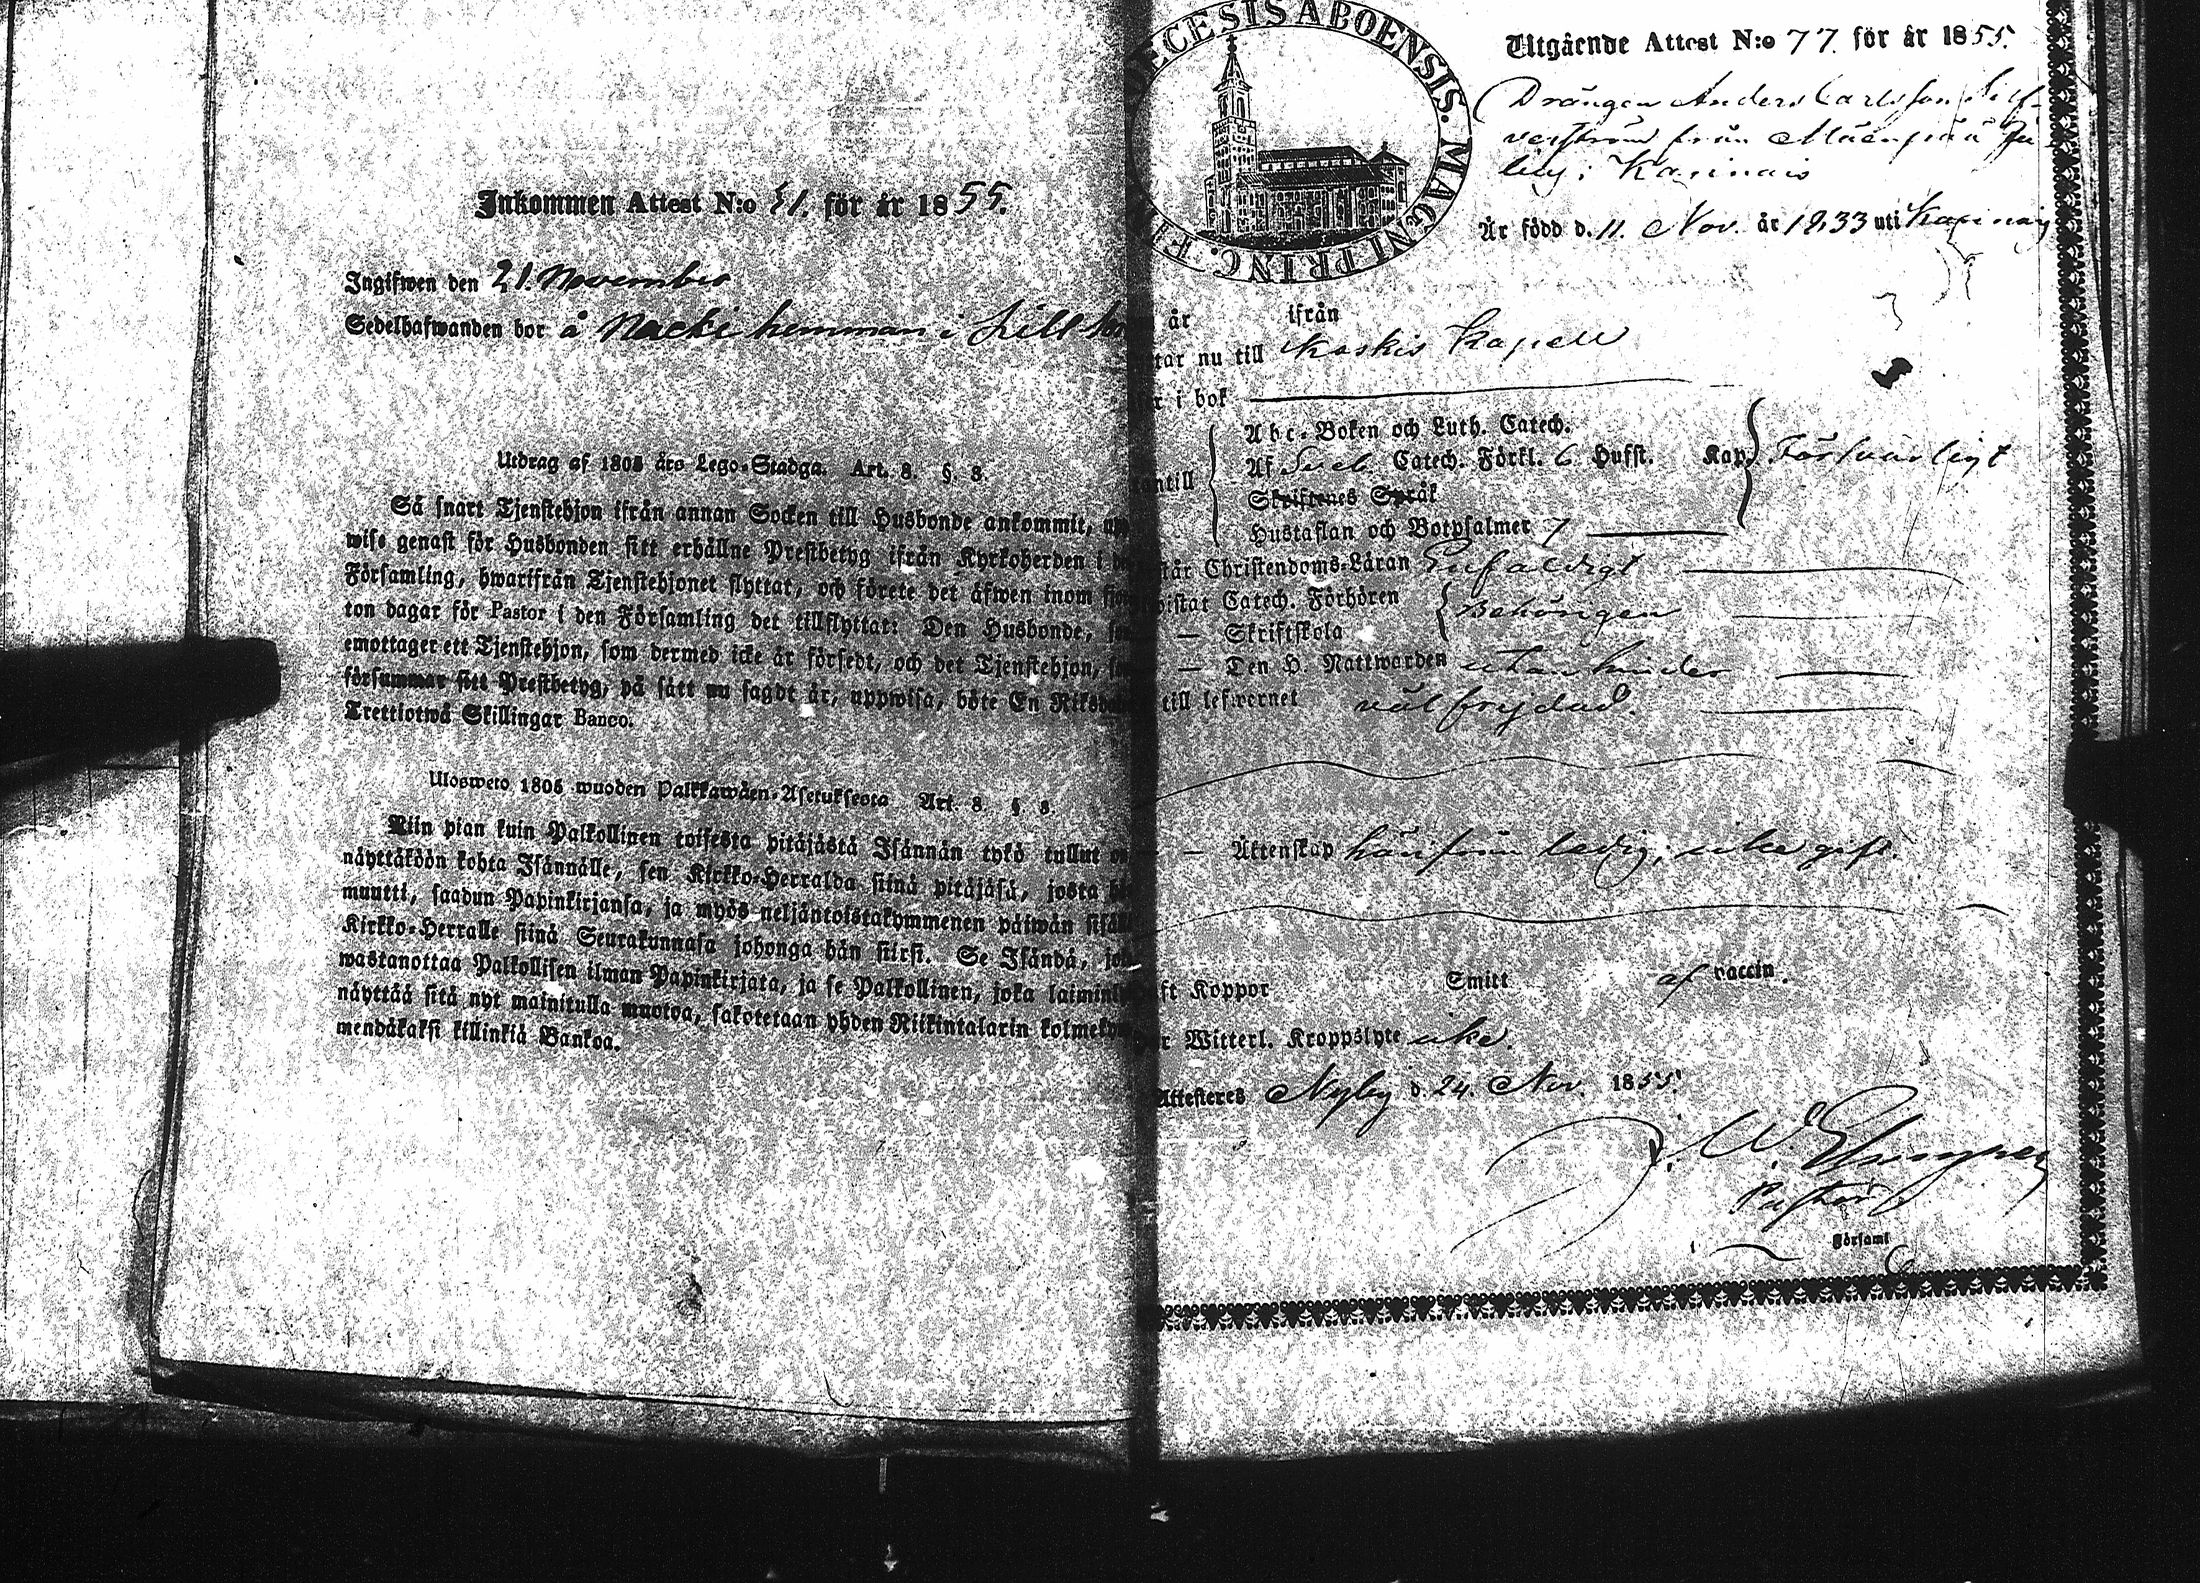 Inkommen Attest N:o 51. för år 1855.
Ingifwen den 21. November
Sedelhafwanden bor å Nacki hemman i Lill
Utdrag af 1805 års Lego-Stadga. Art. 8. §. 8.
Så snart Tjenstehjon ifrån annan Socken till Husbonde ankommit, upp
wise genast för Husbonden sitt erhållne Prestbetyg ifrån Kyrkoherden i
Församling, hwarifrån Tjenstehjonet flyttat, och förete det äfwen inom
ton dagar för Pastor i den Församling det tillflyttat: Den Husbonde,
emottager ett Tjenstehjon, som dermed icke är försedt, och det Tjenstehjon,
försummar sitt Prestbetyg, på sätt nu sagdt är, uppwisa, böte En Riks
Trettiotwå Skillingar Banco.
Ulosweto 1805 wuoden Palkkawäen-Asetuksesta Art. 8. § 8.
Niin pian kuin Palkollinen toisesta pitäjästä Isännän tykö tullut
näyttäköön kohta Isännälle, sen Kirkko-Herralda siinä pitäjäsä, josta
muutti, saadun Papinkirjansa, ja myös neljäntoistakymmenen päiwän
Kirkko-Herralle siinä Seurakunnasa johonga hän siirsi. Se Isändä,
wastanottaa Palkollisen ilman Papinkirjata, ja se Palkollinen, joka
näyttää sitä nyt mainitulla muotoa, sakotetaan yhden Riikintalarin
mendäkaksi killinkiä Bankoa.
ECESIS ABOENSIS. MAGNI PRINC. FI
Utgående Attest N:o 77. för år 1855.
Drängen Anders Carlsson Silf-
verström från
by i Karinais
Är född d. 11. Nov. år 1833 uti Karinais
år ifrån
nu till Koskis Kapell
i bok
Abc-Boken och Luth. Catech.
Af Sveb. Catech. Förkl. 6 Hufst. Kap. Försvarligt
Skriftenes Språk
Hustaflan och Botpsalmer 7
Christendoms-Läran Enfaldigt
Catech. Förhören
Behörigen
— Skriftskola
— Den H. Nattwarden utan hinder
till lefwernet välfrejdad.
— Äktenskap härifrån ledig, icke gift.
Koppor Smitt af vaccin.
Witterl. Kroppslyte icke.
Attesteres Nyby d. 24. Nov. 1855.
Pastor
Församl